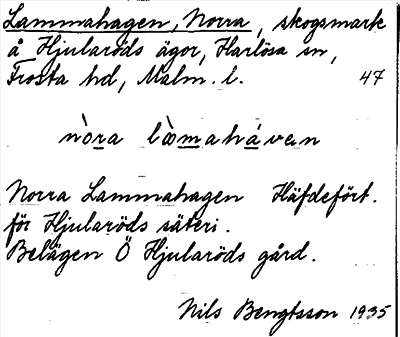 Lammahagen, Norra, skogsmark
å Hjularöds ägor, Harlösa sn,
Frosta hd, Malm. l. 47
nòra làmahávен
Norra Lammahagen Häfdefört.
för Hjularöds säteri.
Belägen Ö Hjularöds gård.
Nils Bengtsson 1935